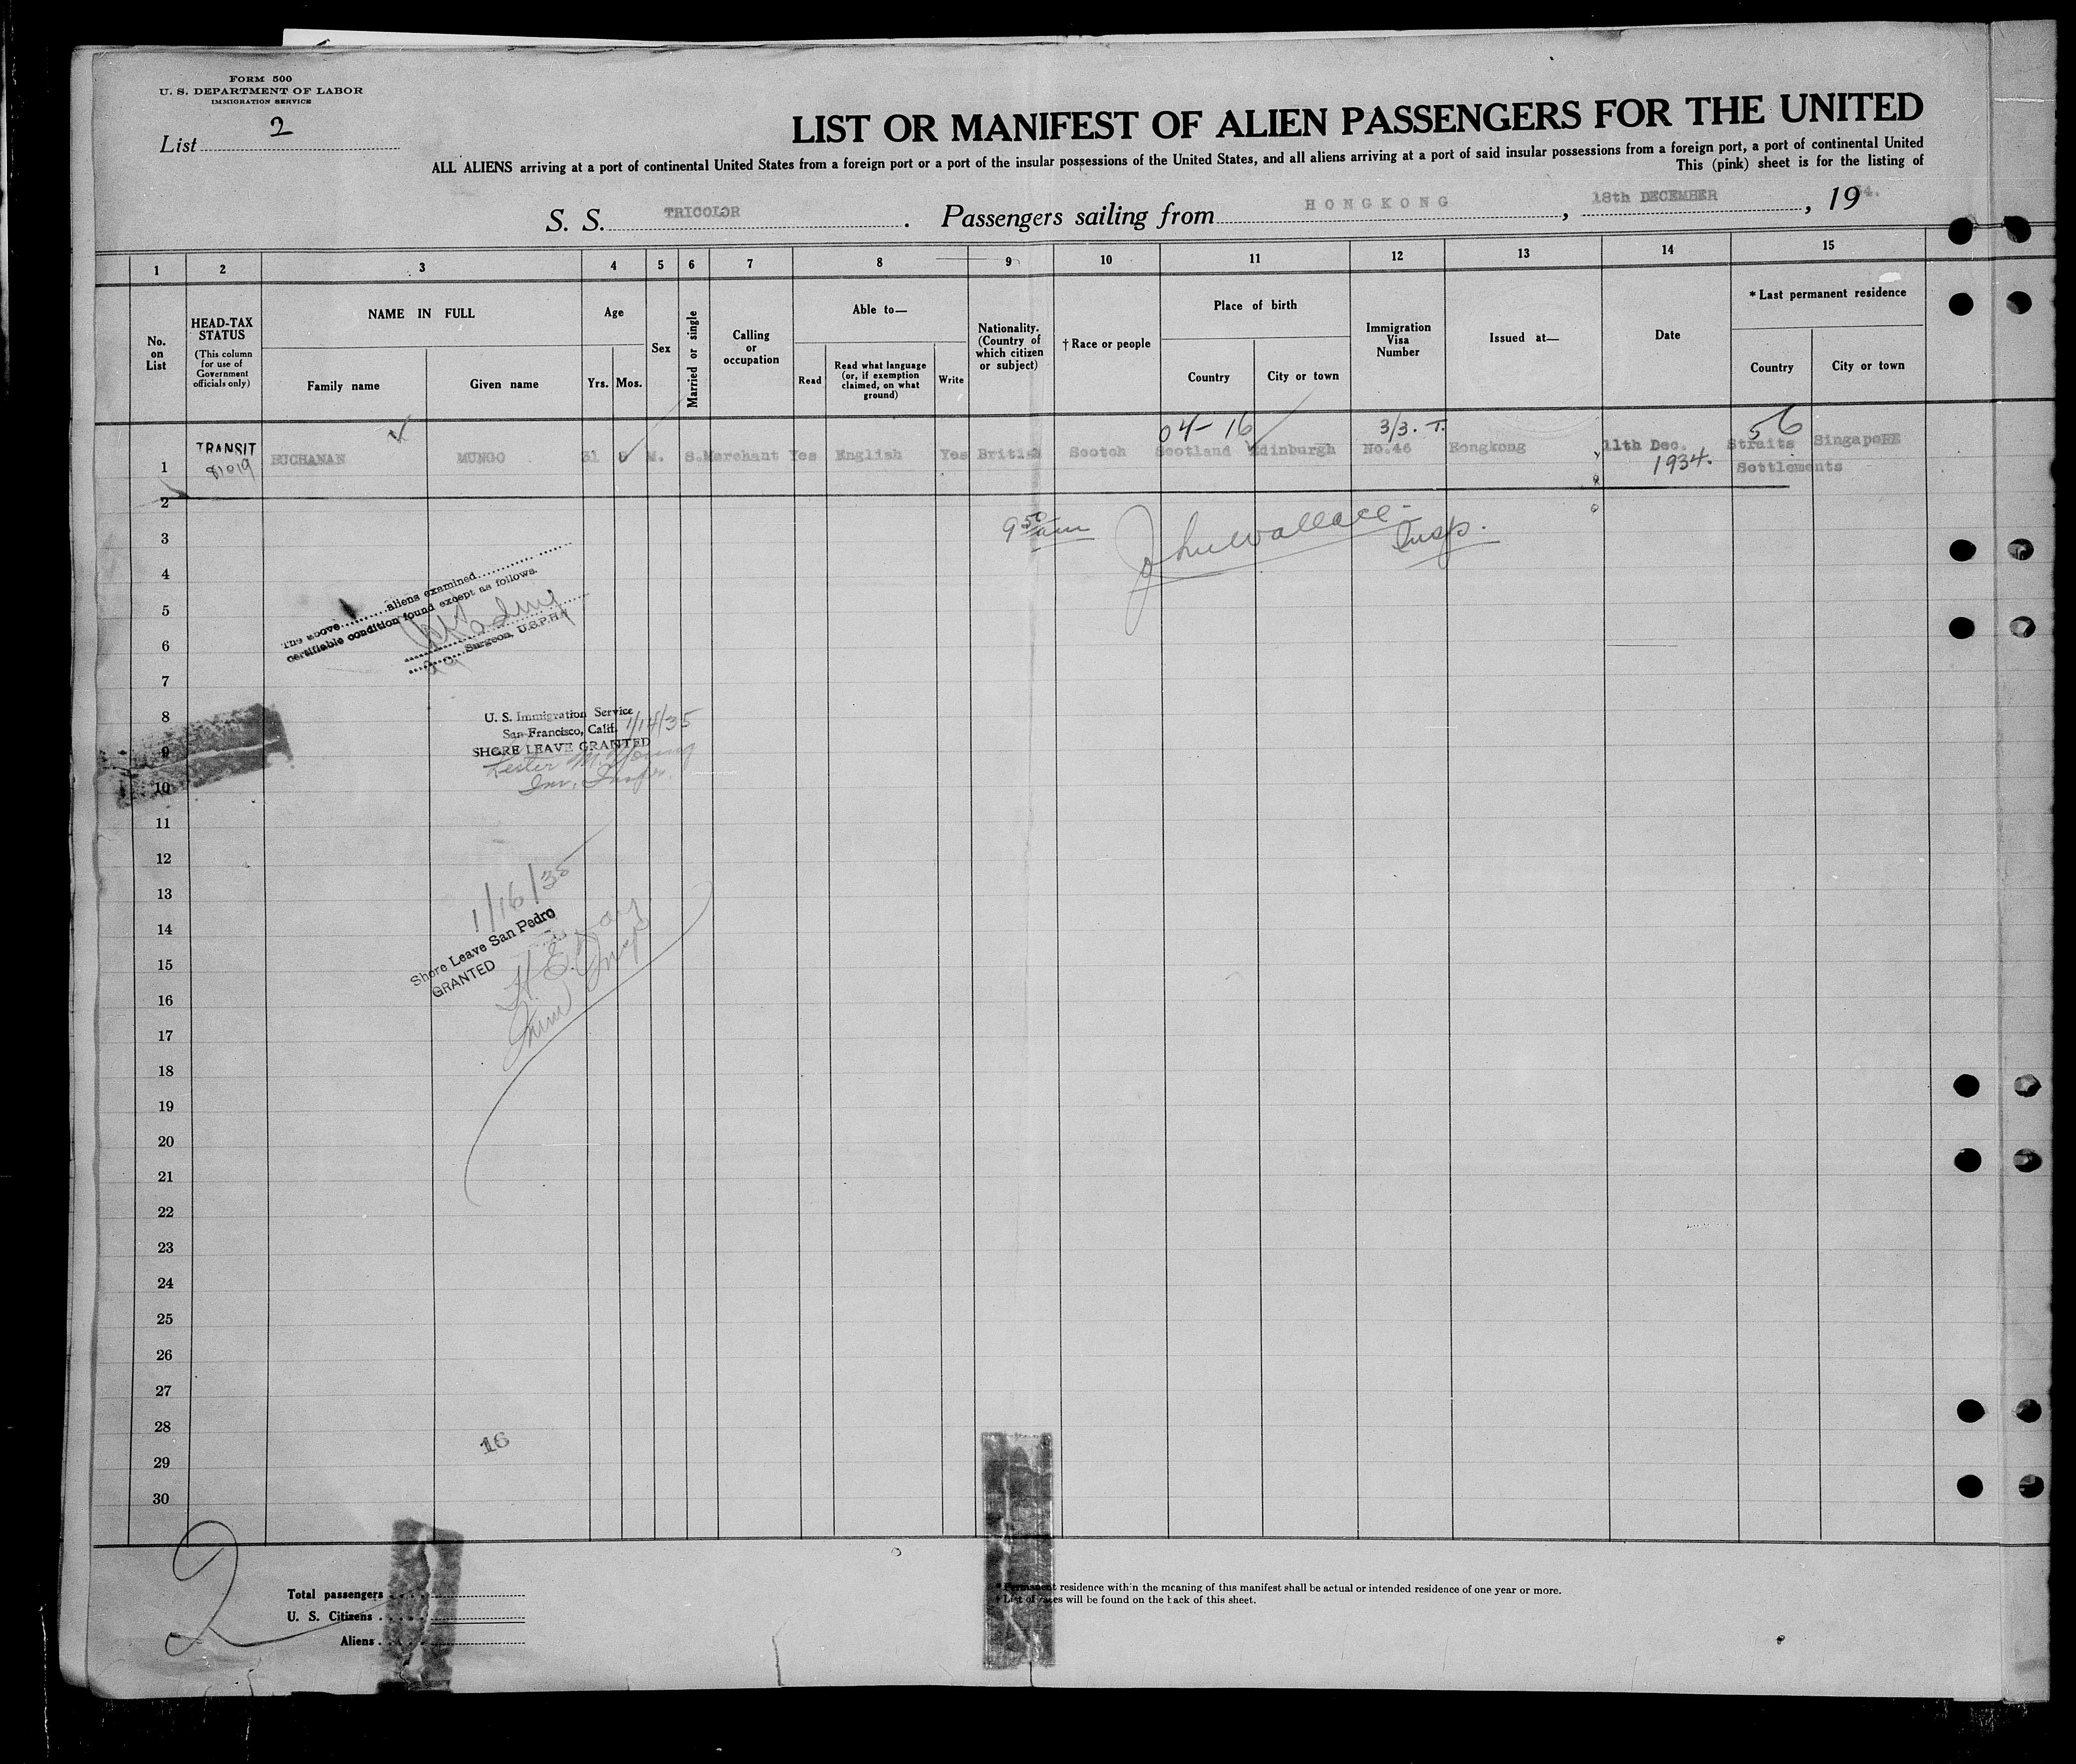 FORM 500
U. S. DEPARTMENT OF LABOR
IMMIGRATION SERVICE
List 2
LIST OR MANIFEST OF ALIEN PASSENGERS FOR THE UNITED
ALL ALIENS arriving at a port of continental United States from a foreign port or a port of the insular possessions of the United States, and all aliens arriving at a port of said insular possessions from a foreign port, a port of continental United
This (pink) sheet is for the listing of
S. S. TRICOLOR. Passengers sailing from HONGKONG, 18th DECEMBER, 1934.
1 2 3 4 5 6 7 8 9 10 11 12 13 14 15
No. on List
HEAD-TAX STATUS
(This column for use of Government officials only)
NAME IN FULL
Family name
Given name
Age
Yrs. Mos.
Sex
Married or single
Calling or occupation
Able to—
Read
Read what language (or, if exemption claimed, on what ground)
Write
Nationality. (Country of which citizen or subject)
† Race or people
Place of birth
Country
City or town
Immigration Visa Number
Issued at—
Date
* Last permanent residence
Country
City or town
04- 16 3/3. T. 56
1 TRANSIT BUCHANAN MUNGO 31 8 M. S. Merchant Yes English Yes British Scotch Scotland Edinburgh No.46 Hongkong 11th Dec. 1934. Straits Settlements Singapore
81019
2
9 50 am John Wallace Insp.
3
4
The above aliens examined
certifiable condition found except as follows.
Surgeon, U.S.P.H.
5
6
7
8
U. S. Immigration Service
San Francisco, Calif. 1/14/35
SHORE LEAVE GRANTED
Lester M. Young
Im. Insp.
9
10
11
12
13
1/16/35
Shore Leave San Pedro
GRANTED
H. E.
Imm Insp
14
15
16
17
18
19
20
21
22
23
24
25
26
27
28
16
29
30
2
Total passengers
U. S. Citizens
Aliens
* Permanent residence within the meaning of this manifest shall be actual or intended residence of one year or more.
† List of races will be found on the back of this sheet.